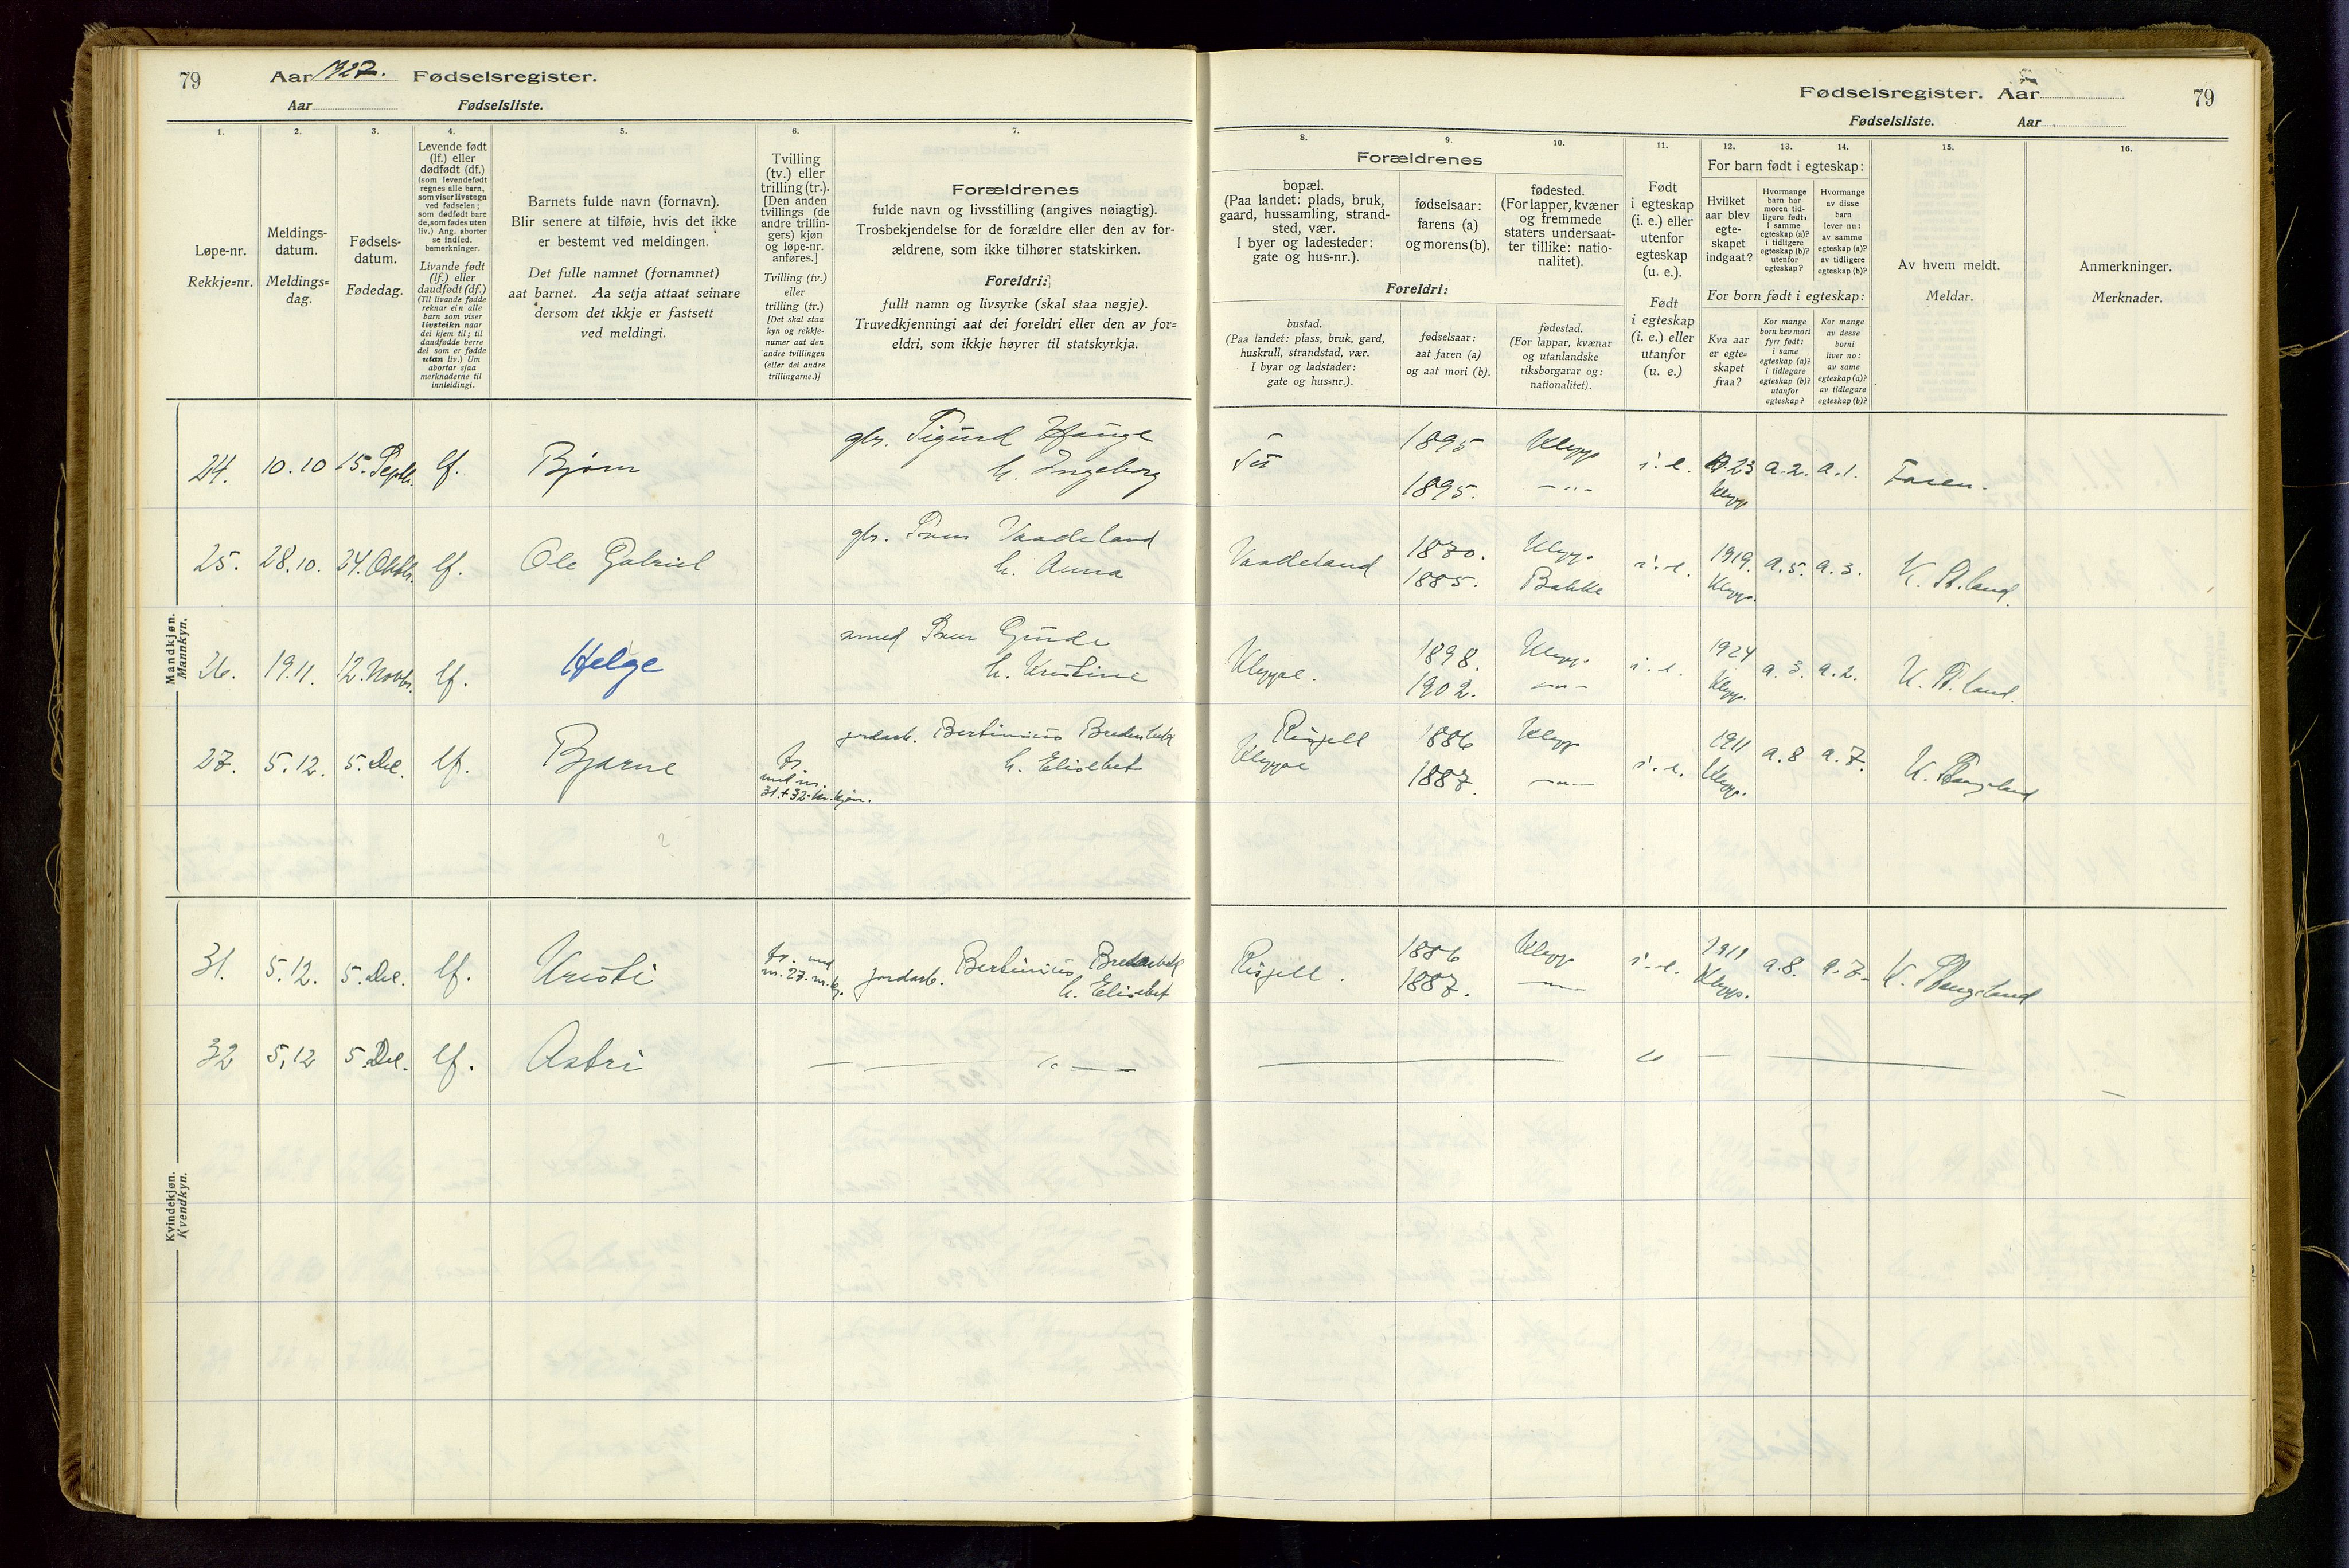 79 Aar 1927. Fødselsregister.
Aar Fødselsliste.
1. 2. 3. 4. 5. 6. 7.
Løpe-nr.
Rekkje=nr.
Meldings-
datum.
Meldings=
dag.
Fødsels-
datum.
Fødedag.
Levende født
(lf.) eller
dødfødt (df.)
(som levendefødt
regnes alle barn,
som viser livstegn
ved fødselen;
som dødfødt bare
de, som fødes uten
liv.) Ang. aborter
se indled.
bemerkninger.
Livande født
(lf.) eller
daudfødt (df.)
(Til livande fødde
reknar ein alle
barn som viser
livsteikn naar
dei kjem til; til
daudfødde berre
dei som er fødde
utan liv.) Um
abortar sjaa
merknaderne til
innleidingi.
Barnets fulde navn (fornavn).
Blir senere at tilføie, hvis det ikke
er bestemt ved meldingen.
Det fulle namnet (fornamnet)
aat barnet. Aa setja attaat seinare
dersom det ikkje er fastsett
ved meldingi.
Tvilling
(tv.) eller
trilling (tr.).
[Den anden
tvillings (de
andre trillin-
gers) kjøn
og løpe-nr.
anføres.]
Tvilling (tv.)
eller
trilling (tr.)
[Det skal staa
kyn og rekkje-
numer aat den
andre tvillingen
(eller dei andre
trillingarne.)]
Forældrenes
fulde navn og livsstilling (angives nøiagtig).
Trosbekjendelse for de forældre eller den av for-
ældrene, som ikke tilhører statskirken.
Foreldri:
fullt namn og livsyrke (skal staa nøgje).
Truvedkjenningi aat dei foreldri eller den av for=
eldri, som ikkje høyrer til statskyrkja.
Mandkjøn.
Mannkyn.
24. 10.10 15. Septbr. lf. Bjørn gbr. Sigurd Hauge
h. Ingeborg
25. 28.10. 24. Oktbr. lf. Ole Gabriel gbr. Sven Vaadeland
h. Anna
26. 19.11. 12. Novbr. lf. Helge smed Sven Grude
h. Kristine
27. 5.12. 5. Des. lf. Bjarne tr.
med nr.
31 + 32 kv.kjøn.
jordarb. Bertinius
h. Elisebet
Kvindekjøn.
Kvendkyn.
31. 5.12. 5. Des. lf. Kristi tr. med
nr. 27. m.kj.
jordarb. Bertinius
h. Elisebet
32 5.12 5 Des. lf. Astri — — " —
Fødselsregister. Aar 79
Fødselsliste. Aar
8. 9. 10. 11. 12. 13. 14. 15. 16.
Forældrenes
bopæl.
(Paa landet: plads, bruk,
gaard, hussamling, strand-
sted, vær.
I byer og ladesteder:
gate og hus-nr.).
fødselsaar:
farens (a)
og morens (b).
fødested.
(For lapper, kvæner
og fremmede
staters undersaat-
ter tillike: natio-
nalitet).
Foreldri:
bustad.
(Paa landet: plass, bruk, gard,
huskrull, strandstad, vær.
I byar og ladstader:
gate og hus=nr.).
fødselsaar:
aat faren (a)
og aat mori (b).
fødestad.
(For lappar, kvænar
og utanlandske
riksborgarar og:
nationalitet).
Født
i egteskap
(i. e.) eller
utenfor
egteskap
(u. e.).
Født
i egteskap
(i. e.) eller
utanfor
(u. e.)
For barn født i egteskap:
Hvilket
aar blev
egte-
skapet
indgaat?
Hvormange
barn har
moren tid-
ligere født:
i samme
egteskap (a)?
i tidligere
egteskap (b)?
utenfor
egteskap?
Hvormange
av disse
barn
lever nu:
av samme
egteskap (a)?
av tidligere
egteskap (b)?
For born født i egteskap:
Kva aar
er egte=
skapet
fraa?
Kor mange
born hev mori
fyrr født:
i same
egteskap (a)?
i tidlegare
egteskap (b)?
utanfor
egteskap?
Kor mange
av desse
borni
liver no:
av same
egteskap (a)?
av tidlegare
egteskap (b)?
Av hvem meldt.
Meldar.
Anmerkninger.
Merknader.
Tu 1895 Klepp i. e. 23 a. 2. a. 1. Faren.
1895. — " — Klepp
Vaadeland 1870. Klepp. i. e. 1919. a. 5. a. 3.
1885. Bakke Klepp.
Kleppe. 1898. Klepp. i. e. 1924 a. 3. a. 2.
1902. — " — Klepp.
Kleppe 1886 Klepp i. e. 1911 a. 8 a. 7.
1887. — " — Klepp.
1886 Klepp i. e. 1911 a. 8. a. 7.
1887. — " — Klepp.
— " — —